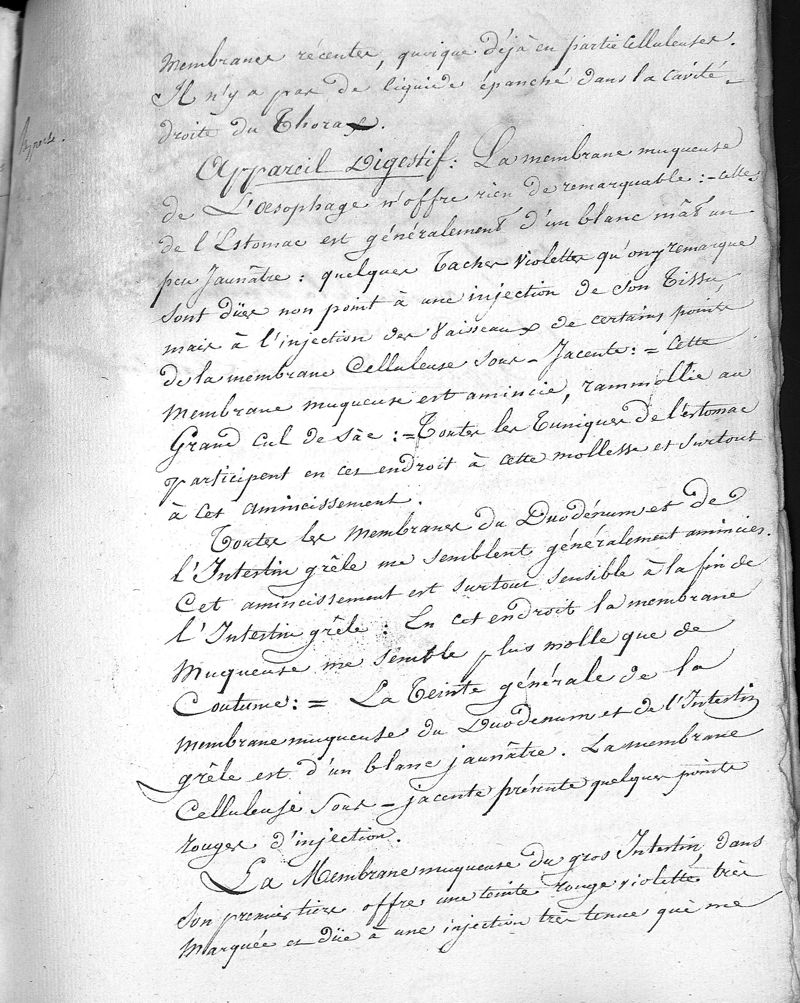 membranes récentes, quoique déjà en partie Celluleuses.
Il n'y a pas de liquide épanché dans la cavité
droite du Thorax.
Appareil Digestif : La membrane muqueuse
de L'œsophage n'offre rien de remarquable : = Celle
de l'Estomac est généralement d'un blanc mât un
peu Jaunâtre : quelques taches violettes qu'on y remarque
sont dües non point à une injection de son tissu,
mais à l'injection des Vaisseaux de certains points
de la membrane Celluleuse sous-Jacente : = Cette
membrane muqueuse est amincie, rammollie au
Grand Cul de sâc : = Toutes les tuniques de l'estomac
participent en cet endroit à cette mollesse et surtout
à cet amincissement.
Toutes les membranes du Duodénum et de
l'Intestin grêle me semblent généralement amincies.
Cet amincissement est surtout sensible à la fin de
l'Intestin grêle : En cet endroit la membrane
Muqueuse me semble plus molle que de
Coutume : = La teinte générale de la
membrane muqueuse du Duodenum et de l'Intestin
grêle est d'un blanc jaunâtre. La membrane
Celluleuse sous-jacente présente quelques points
rouges d'injection.
La Membrane muqueuse du gros Intestin, dans
son premier tiers offre une teinte rouge violette très
Marquée et düe à une injection très tenue qui me